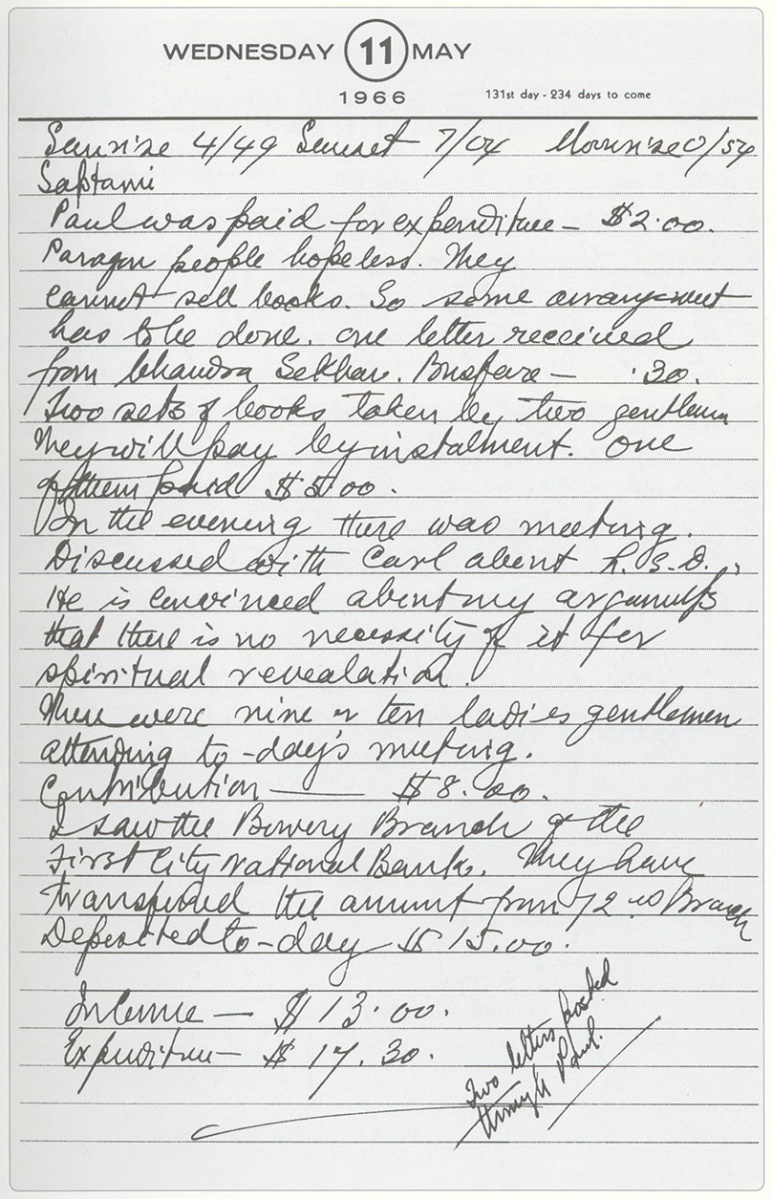 WEDNESDAY 11 MAY
1966 131st day - 234 days to come
Sunrise 4/49 Sunset 7/04 Moonrise 0/54
Saptami
Paul was paid for expenditure — $2.00.
Paragon people hopeless. They
cannot sell books. So some arrangement
has to be done. One letter received
from Chandra Sekhar. Busfare — .30.
Two sets of books taken by two gentlemen
They will pay by instalment. One
of them paid $5.00.
In the evening there was meeting.
Discussed with Carl about L.S.D.,
He is convinced about my arguments
that there is no necessity of it for
spiritual revealation.
There were nine or ten ladies gentlemen
attending to-day's meeting.
Contribution — $8.00.
I saw the Bowery Branch of the
First City National Bank. They have
transfered the amount from 72 Branch
Deposited to-day $15.00.
Income — $13.00.
Expenditure — $17.30.
Two letters posted
through Paul.